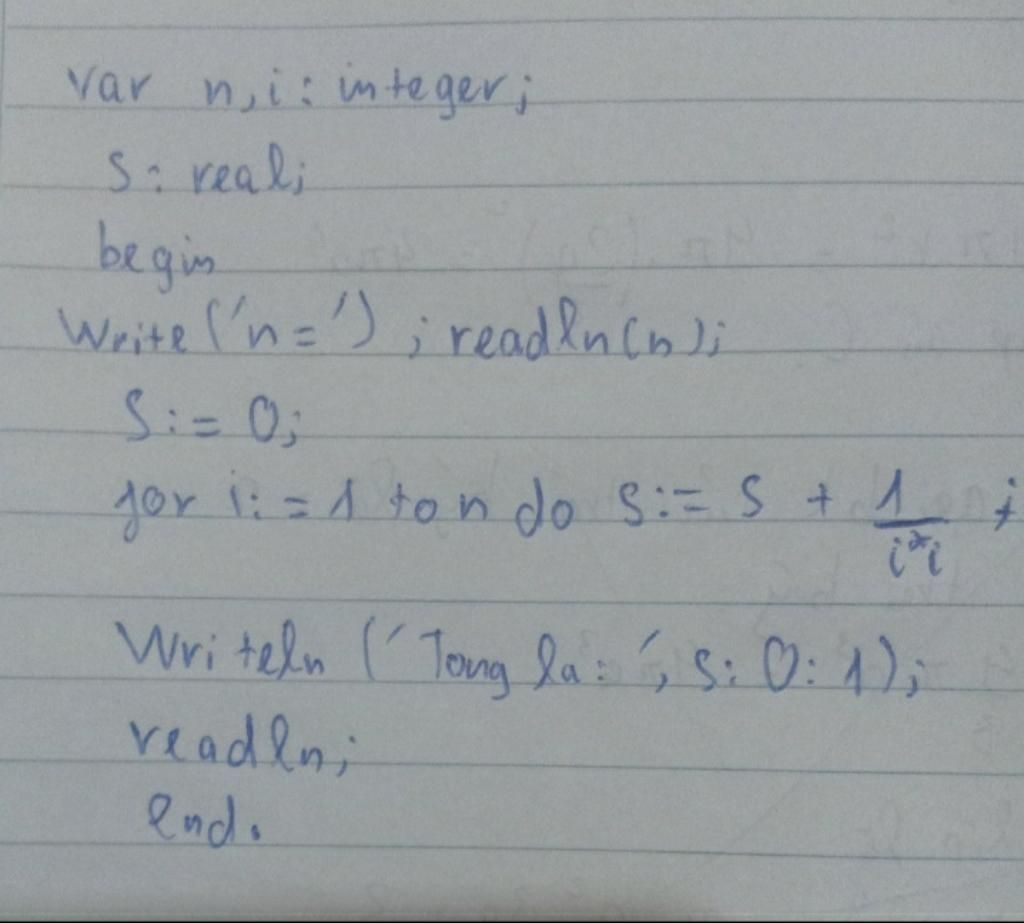 var n,i: integer;
s: real;
begin
Write('n='); readln(n);
S:= 0;
for i:=1 to n do s:= s + 1/i*i;
Writeln ('Tong la: ', s: 0: 1);
readln;
end.